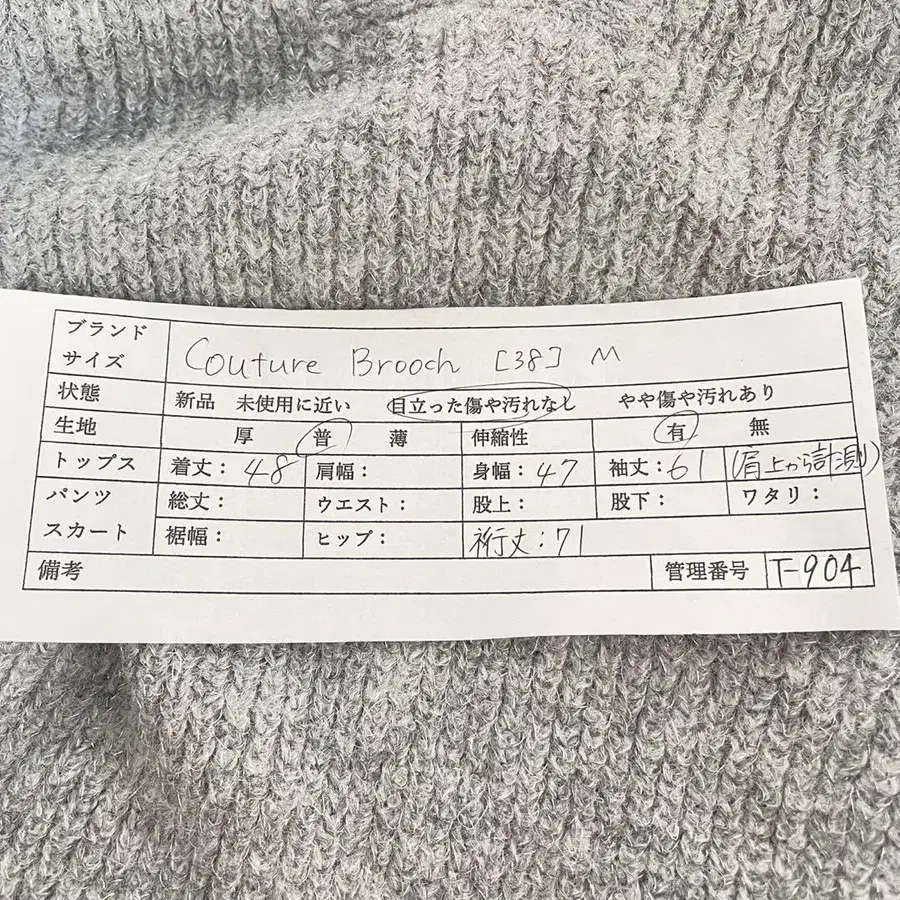 ブランド
サイズ Couture Brooch [38] M
状態 新品 未使用に近い 目立った傷や汚れなし やや傷や汚れあり
生地 厚 普 薄 伸縮性 有 無
トップス 着丈：48 肩幅： 身幅：47 袖丈：61 (肩上から計測)
パンツ 総丈： ウエスト： 股上： 股下： ワタリ：
スカート 裾幅： ヒップ： 裄丈：71
備考 管理番号 T-904